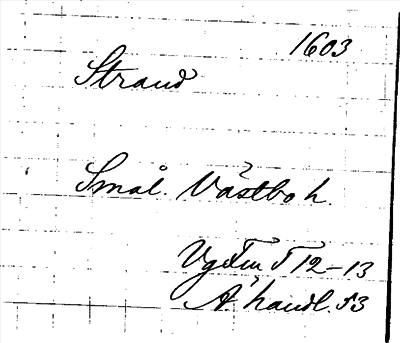 1603
Strand
Smål. Västbo h.
12-13
Ä. handl. 53